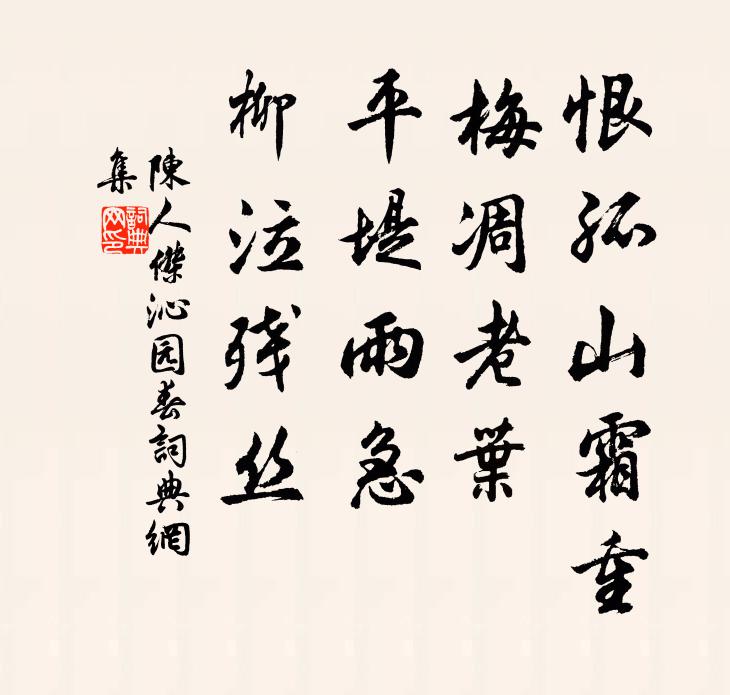 恨孤山霜重
梅凋老葉
平堤雨急
柳泣残丝
陳人傑沁园春詞典網
集
詞典
网印